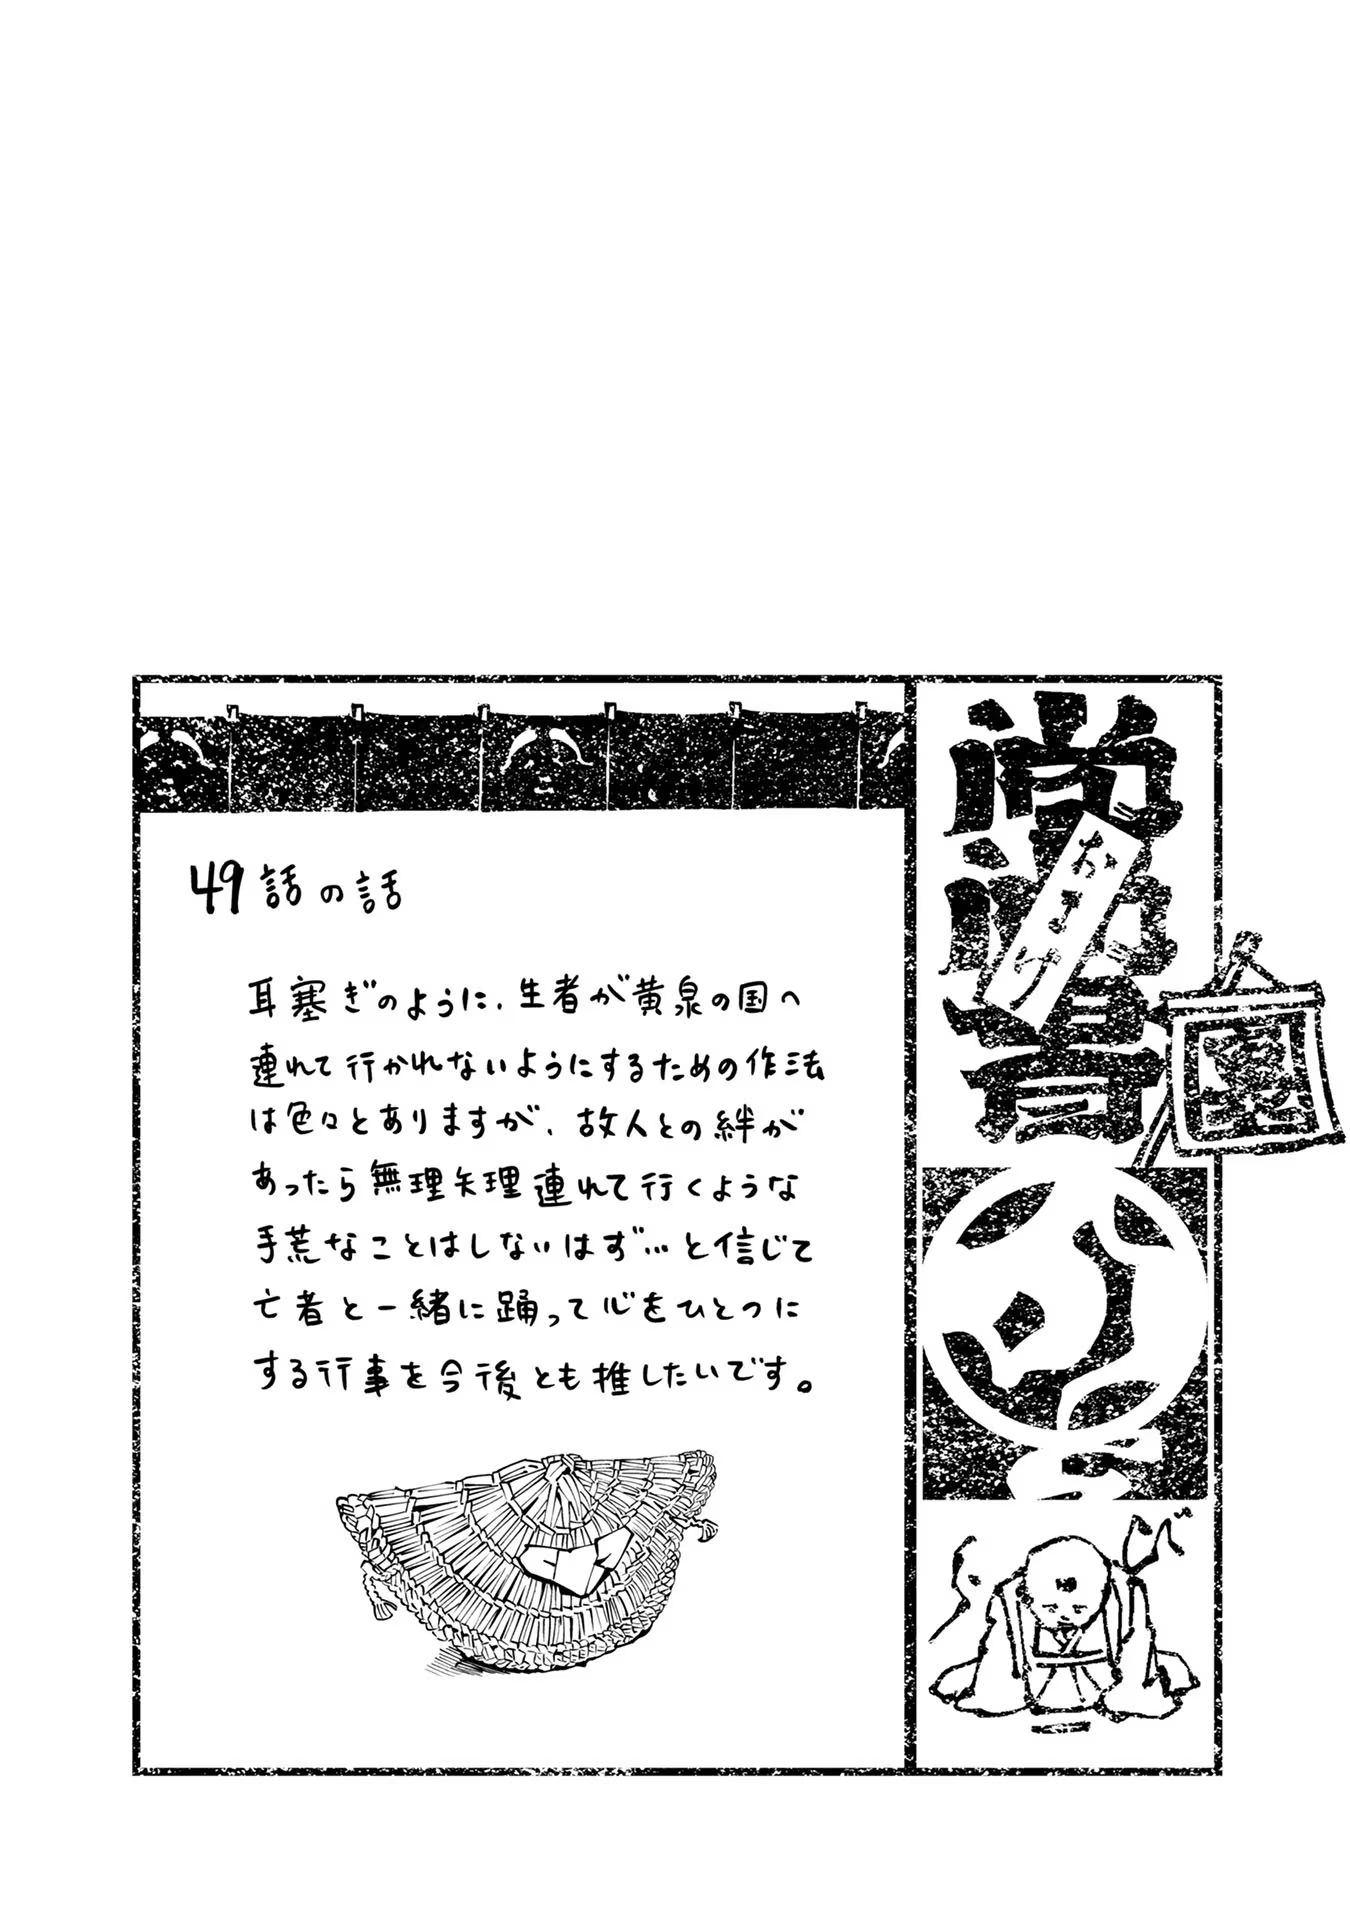 49話の話
耳塞ぎのように、生者が黄泉の国へ
連れて行かれないようにするための作法
は色々とありますが、故人との絆が
あったら無理矢理連れて行くような
手荒なことはしないはず…と信じて
亡者と一緒に踊って心をひとつに
する行事を今後とも推したいです。
おまけ